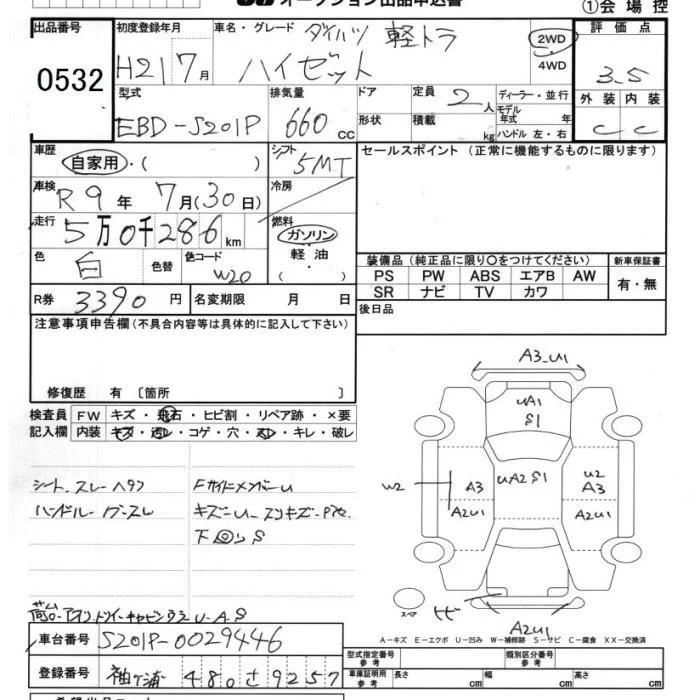 オークション出品申込書
①会場控
出品番号 0532
初度登録年月 H21 7月
車名・グレード ダイハツ 軽トラ ハイゼット
2WD
4WD
評価点 3.5
外装 内装
C C
型式 EBD-S201P
排気量 660 CC
ドア
形状
定員 2人
積載 kg
ディーラー・並行
モデル年式 年
ハンドル 左・右
車歴 自家用・( )
シフト 5MT
セールスポイント (正常に機能するものに限ります)
車検 R9年 7月(30日)
冷房
走行 5万0千286km
燃料 ガソリン
軽油
色 白 色替 色コード W20
装備品(純正品に限り○をつけてください)
新車保証書
PS PW ABS エアB AW
有・無
SR ナビ TV カワ
R券 3390円 名変期限 月 日
後日品
注意事項申告欄(不具合内容等は具体的に記入して下さい)
修復歴 有 〔箇所 〕
検査員 FW キズ・飛石・ヒビ割・リペア跡・×要
記入欄 内装 キズ・汚レ・コゲ・穴・スレ・キレ・破レ
シート.スレ-ヘタリ
Fサイドメンバーu
キズ-u-
下回りS
A3.u1
uA1
S1
W2
A3
uA2 S1
u2
A3
A2u1
A2u1
スペア
ヒビ
A2u1
A-キズ E-エクボ U-凹み W-補修跡 S-サビ C-腐食 XX-交換済
u-A-S
車台番号 S201P-0029446
型式指定番号 参考
類別区分番号 参考
登録番号 袖ヶ浦 480 さ 9257
車庫証明用 参考 長さ cm 幅 cm 高さ cm